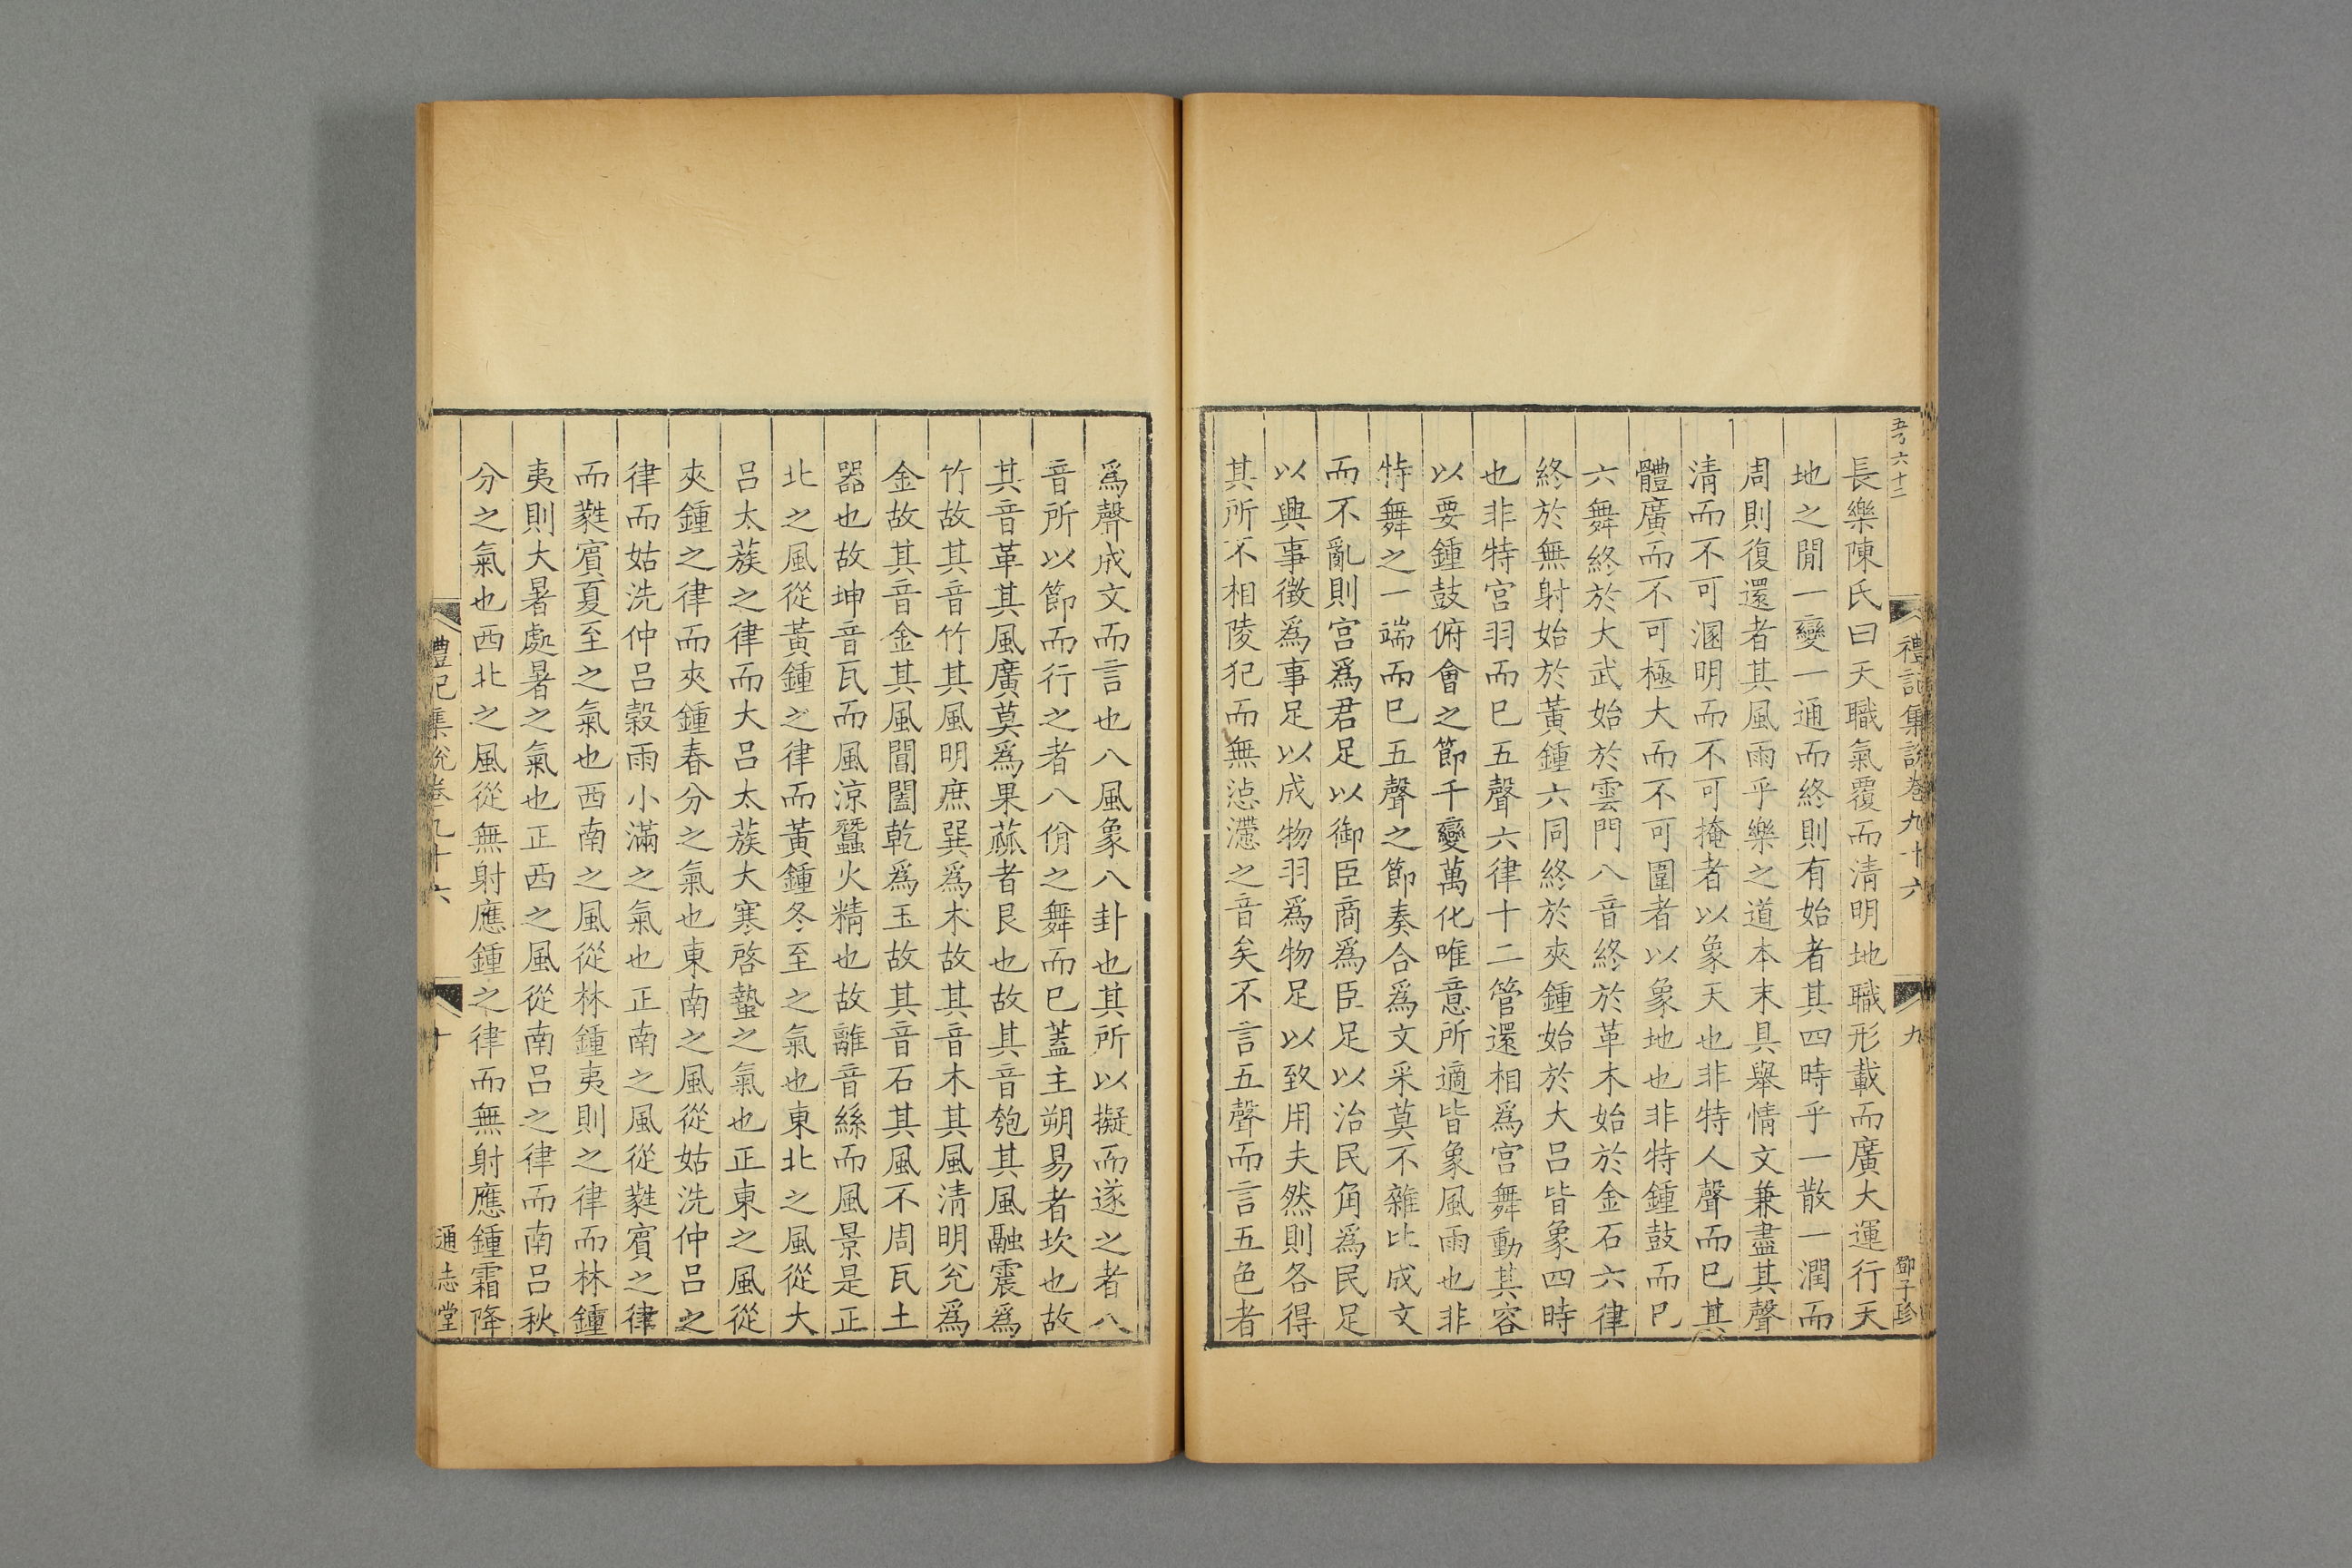 長樂陳氏曰天職氣覆而清明地職形載而廣大運行天
地之閒一變一通而終則有始者其四時乎一散一潤而
周則復還者其風雨乎樂之道本末具舉情文兼盡其聲
清而不可溷明而不可掩者以象天也非特人聲而已其
體廣而不可極大而不可圍者以象地也非特鍾鼓而已
六舞終於大武始於雲門八音終於革木始於金石六律
終於無射始於黃鍾六同終於夾鍾始於大呂皆象四時
也非特宮羽而已五聲六律十二管還相爲宮舞動其容
以要鍾鼓俯會之節千變萬化唯意所適皆象風雨也非
特舞之一端而已五聲之節奏合爲文采莫不雜比成文
而不亂則宮爲君足以御臣商爲臣足以治民角爲民足
以興事徵爲事足以成物羽爲物足以致用夫然則各得
其所不相陵犯而無惉懘之音矣不言五聲而言五色者
禮記集說卷九十六
九
鄧子珍
爲聲成文而言也八風象八卦也其所以擬而遂之者八
音所以節而行之者八佾之舞而已蓋主朔易者坎也故
其音革其風廣莫爲果蓏者艮也故其音匏其風融震爲
竹故其音竹其風明庶巽爲木故其音木其風清明兊爲
金故其音金其風閶闔乾爲玉故其音石其風不周瓦土
器也故坤音瓦而風涼蠶火精也故離音絲而風景是正
北之風從黃鍾之律而黃鍾冬至之氣也東北之風從大
呂太蔟之律而大呂太蔟大寒啓蟄之氣也正東之風從
夾鍾之律而夾鍾春分之氣也東南之風從姑洗仲呂之
律而姑洗仲呂穀雨小滿之氣也正南之風從蕤賓之律
而蕤賓夏至之氣也西南之風從林鍾夷則之律而林鍾
夷則大暑處暑之氣也正西之風從南呂之律而南呂秋
分之氣也西北之風從無射應鍾之律而無射應鍾霜降
禮記集說卷九十六
十
通志堂